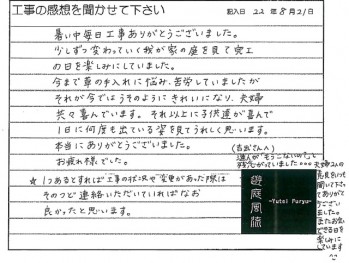 工事の感想を聞かせて下さい
記入日 22年 8月21日
暑い中毎日工事ありがとうございました。
少しずつ変わっていく我が家の庭を見て完工
の日を楽しみにしていました。
今まで草の手入れに悩み、苦労していましたが
それが今ではうそのようにきれいになり、夫婦
共々喜んでいます。それ以上に子供達が喜んで
1日に何度も出ている姿を見てうれしく思います。
本当にありがとうございました。
お疲れ様でした。
☆1つあるとすれば工事の状況や変更があった際は
そのつど連絡いただいていればなお
良かったと思います。
達人が"もうこないの?"と
残念がっていました。
遊庭風流
-Yutei Furyu-